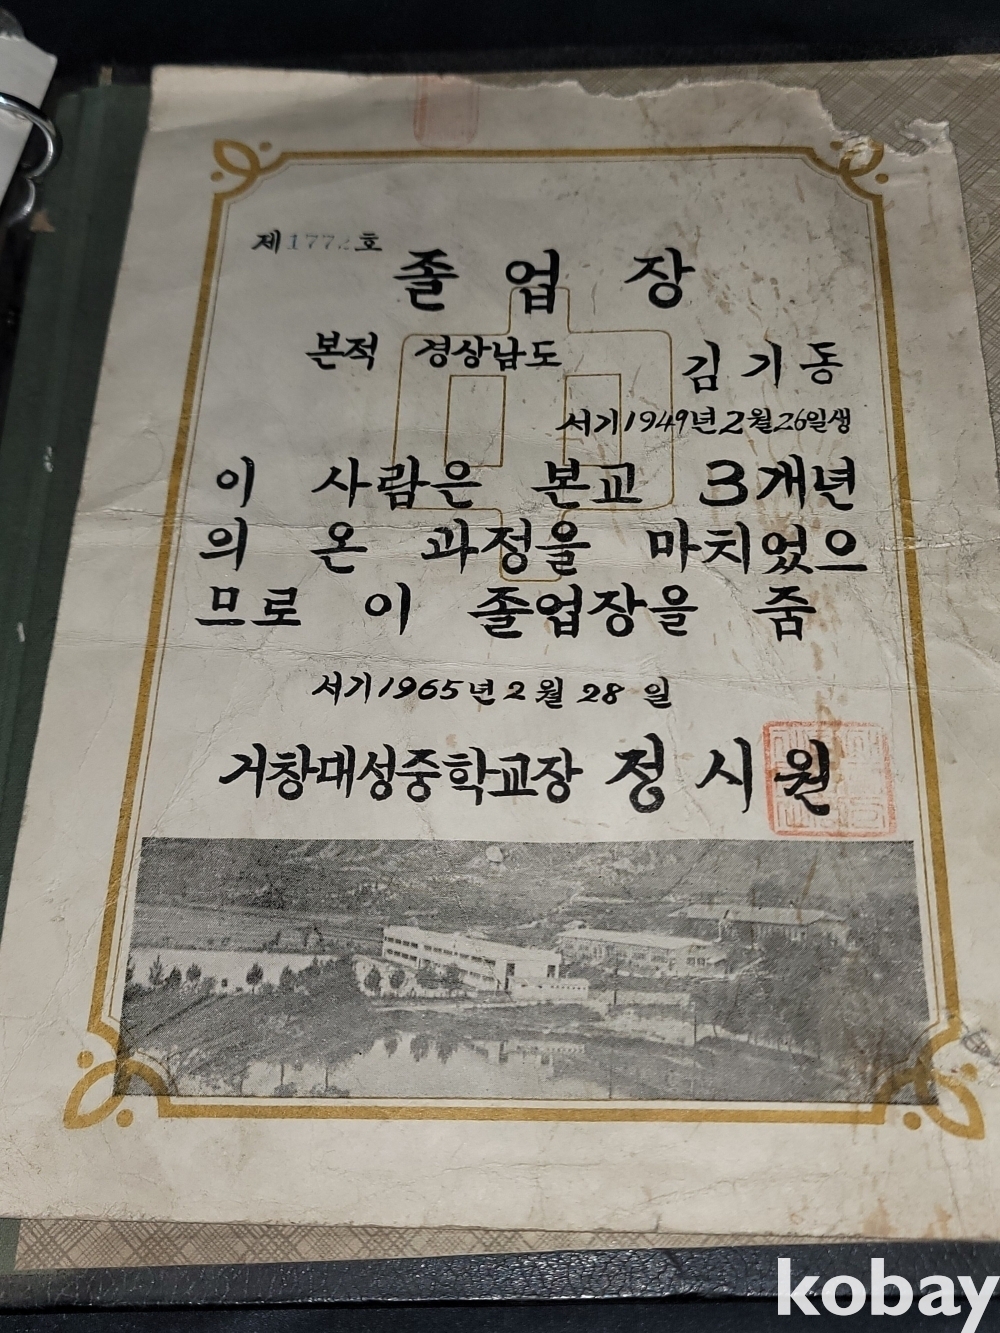 제1772호
졸업장
본적 경상남도
김기동
서기1949년2월26일생
이 사람은 본교 3개년
의 온 과정을 마치었으
므로 이 졸업장을 줌
서기1965년2월28일
거창대성중학교장 정시원
kobay